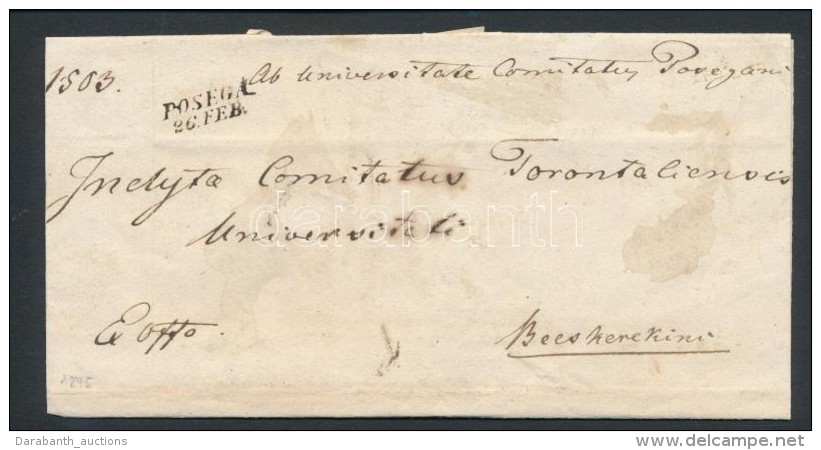 1503. Ab Universitate Comitatus Posegani
POSEGA
26.FEB.
Inclytæ Comitatus Torontaliensis
Universitati
darabanth
Ex offo.
Becskerekini
1845
Darabanth_auctions
www.delcampe.net